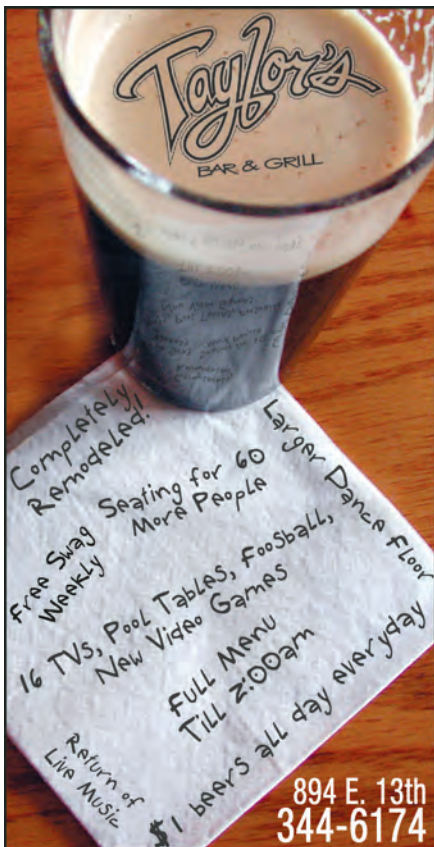 Taylor's
BAR & GRILL
Completely
Remodeled!
Larger Dance Floor
Seating for 60
More People
Free Swag
Weekly
16 TVs, Pool Tables, Foosball,
New Video Games
Full Menu
Till 2:00am
Return of
Live Music
$1 beers all day everyday
894 E. 13th
344-6174